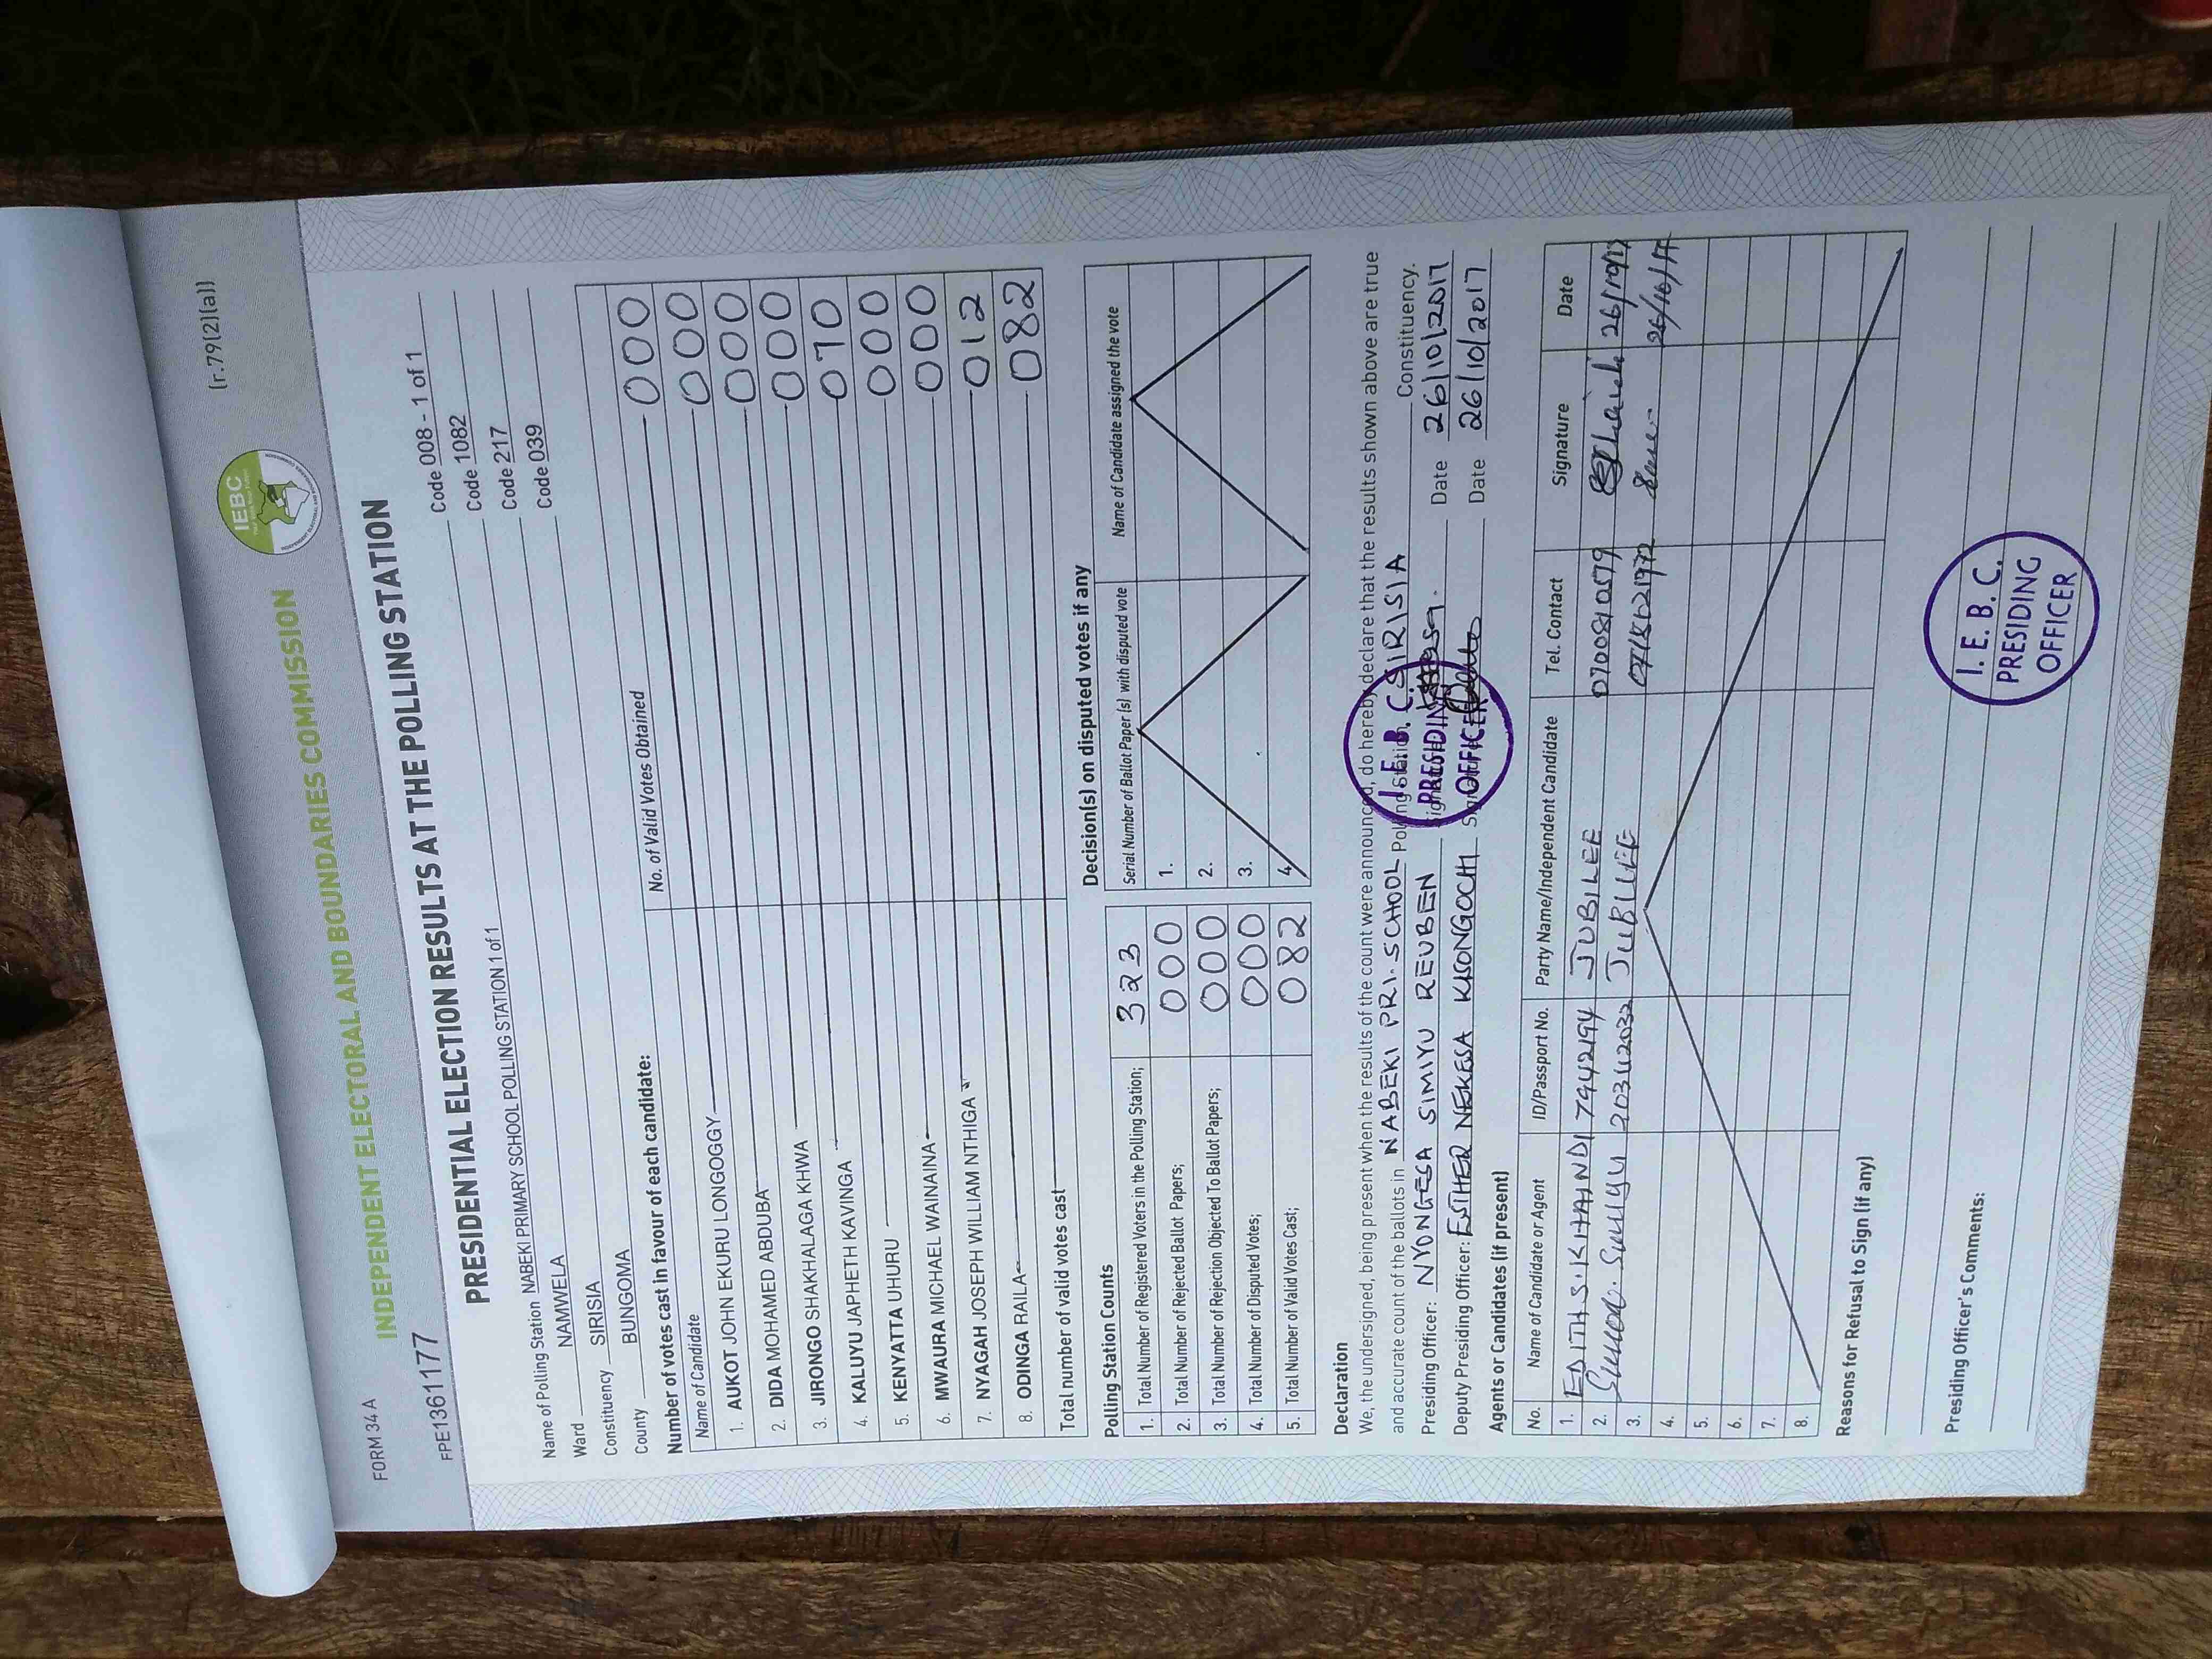 FORM 34 A
(r.79(2)(a))
INDEPENDENT ELECTORAL AND BOUNDARIES COMMISSION
IEBC
FPE1361177
PRESIDENTIAL ELECTION RESULTS AT THE POLLING STATION
Name of Polling Station NABEKI PRIMARY SCHOOL POLLING STATION 1 of 1 Code 008 - 1 of 1
Ward NAMWELA Code 1082
Constituency SIRISIA Code 217
County BUNGOMA Code 039
Number of votes cast in favour of each candidate:
Name of Candidate No. of Valid Votes Obtained
1. AUKOT JOHN EKURU LONGOGGY 000
2. DIDA MOHAMED ABDUBA 000
3. JIRONGO SHAKHALAGA KHWA 000
4. KALUYU JAPHETH KAVINGA 000
5. KENYATTA UHURU 070
6. MWAURA MICHAEL WAINAINA 000
7. NYAGAH JOSEPH WILLIAM NTHIGA 000
8. ODINGA RAILA 012
Total number of valid votes cast 082
Polling Station Counts
1. Total Number of Registered Voters in the Polling Station; 323
2. Total Number of Rejected Ballot Papers; 000
3. Total Number of Rejection Objected To Ballot Papers; 000
4. Total Number of Disputed Votes; 000
5. Total Number of Valid Votes Cast; 082
Decision(s) on disputed votes if any
Serial Number of Ballot Paper (s) with disputed vote Name of Candidate assigned the vote
1.
2.
3.
4.
Declaration
We, the undersigned, being present when the results of the count were announced, do hereby declare that the results shown above are true
and accurate count of the ballots in NABEKI PRI. SCHOOL Polling Station, SIRISIA Constituency.
Presiding Officer: NYONGESA SIMIYU REUBEN Signature Date 26/10/2017
Deputy Presiding Officer: ESTHER NEKESA KISONGOCHI Signature Date 26/10/2017
I. E. B. C.
PRESIDING
OFFICER
Agents or Candidates (if present)
No. Name of Candidate or Agent ID/Passport No. Party Name/Independent Candidate Tel. Contact Signature Date
1. EDITH S. KHAINDI 7942194 JUBILEE 0700810579 26/10/17
2. JUBILEE 26/10/17
3.
4.
5.
6.
7.
8.
Reasons for Refusal to Sign (if any)
Presiding Officer's Comments:
I. E. B. C.
PRESIDING
OFFICER